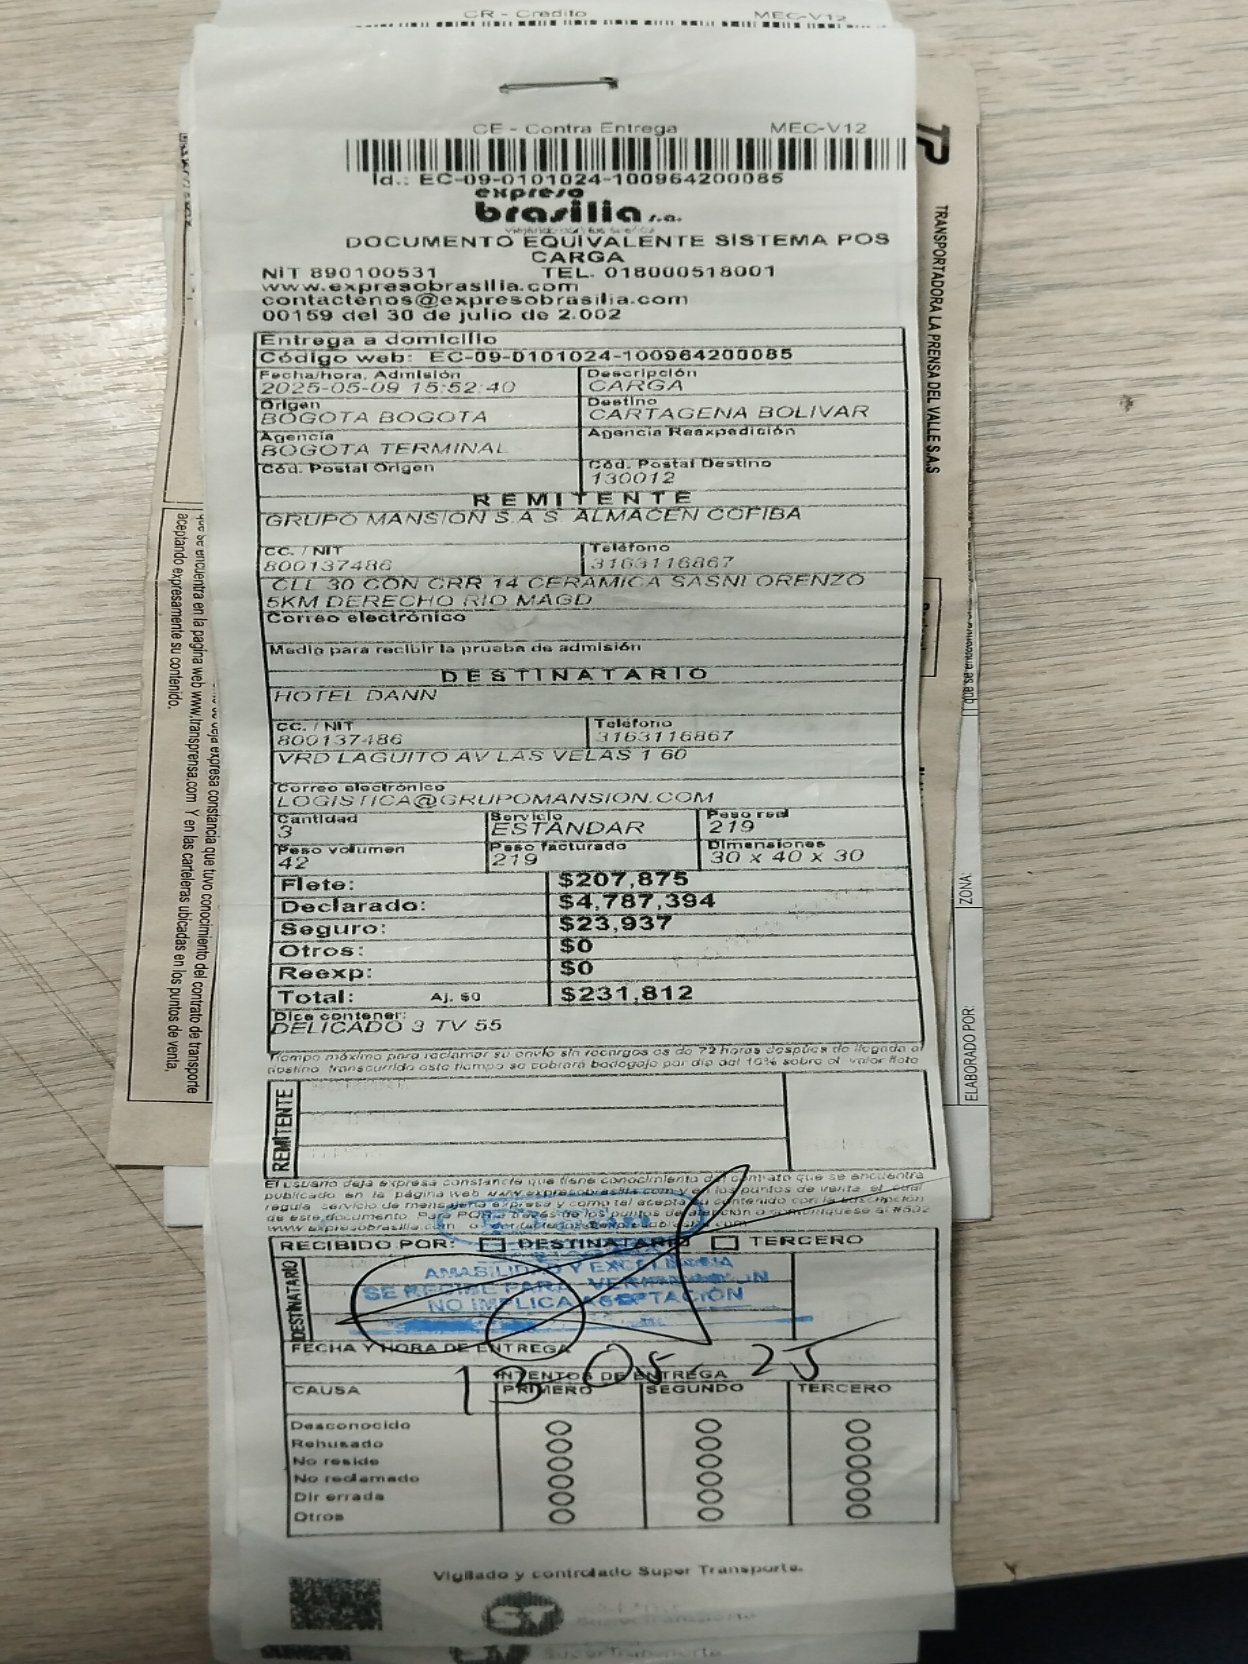 CR - Credito MEC-V12
CE - Contra Entrega MEC-V12
Id.: EC-09-0101024-100964200085
expreso
brasilia s.a.
DOCUMENTO EQUIVALENTE SISTEMA POS
CARGA
NIT 890100531 TEL. 018000518001
www.expresobrasilia.com
contactenos@expresobrasilia.com
00159 del 30 de julio de 2.002
Entrega a domicilio
Código web: EC-09-0101024-100964200085
Fecha/hora. Admisión Descripción
2025-05-09 15:52:40 CARGA
Origen Destino
BOGOTA BOGOTA CARTAGENA BOLIVAR
Agencia Agencia Reexpedición
BOGOTA TERMINAL
Cód. Postal Origen Cód. Postal Destino
130012
REMITENTE
GRUPO MANSION S.A.S. ALMACEN COFIBA
CC. / NIT Teléfono
800137486 3163116867
CLL 30 CON CRR 14 CERAMICA SASNLORENZO
5KM DERECHO RIO MAGD
Correo electrónico
Medio para recibir la prueba de admisión
DESTINATARIO
HOTEL DANN
CC. / NIT Teléfono
800137486 3163116867
VRD LAGUITO AV LAS VELAS 1 60
Correo electrónico
LOGISTICA@GRUPOMANSION.COM
Cantidad Servicio Peso real
3 ESTANDAR 219
Peso volumen Peso facturado Dimensiones
42 219 30 x 40 x 30
Flete: $207,875
Declarado: $4,787,394
Seguro: $23,937
Otros: $0
Reexp: $0
Total: Aj. $0 $231,812
Dice contener:
DELICADO 3 TV 55
Tiempo máximo para reclamar su envío sin recargos es de 72 horas después de llegada al
destino, transcurrido este tiempo se cobrará bodegaje por día del 10% sobre el valor flete
REMITENTE
El usuario deja expresa constancia que tiene conocimiento del contrato que se encuentra
publicado en la página web www.expresobrasilia.com y en los puntos de venta, el cual
regula servicio de mensajería expresa y como tal acepta su contenido con la suscripción
de este documento. Para PQR a través de los puntos de atención o comuníquese al #502
www.expresobrasilia.com o contactenos@expresobrasilia.com
RECIBIDO POR: DESTINATARIO TERCERO
DESTINATARIO
AMABILIDAD Y EXCELENCIA
SE RECIBE PARA VERIFICACION
NO IMPLICA ACEPTACIÓN
FECHA Y HORA DE ENTREGA
13-05-25
INTENTOS DE ENTREGA
CAUSA PRIMERO SEGUNDO TERCERO
Desconocido
Rehusado
No reside
No reclamado
Dir errada
Otros
Vigilado y controlado Super Transporte.
ST
SuperTransporte
TP
TRANSPORTADORA LA PRENSA DEL VALLE S.A.S
que se encuentra
ZONA:
ELABORADO POR:
expresa constancia que tuvo conocimiento del contrato de transporte
que se encuentra en la pagina web www.transprensa.com Y en las carteleras ubicadas en los puntos de venta,
aceptando expresamente su contenido.